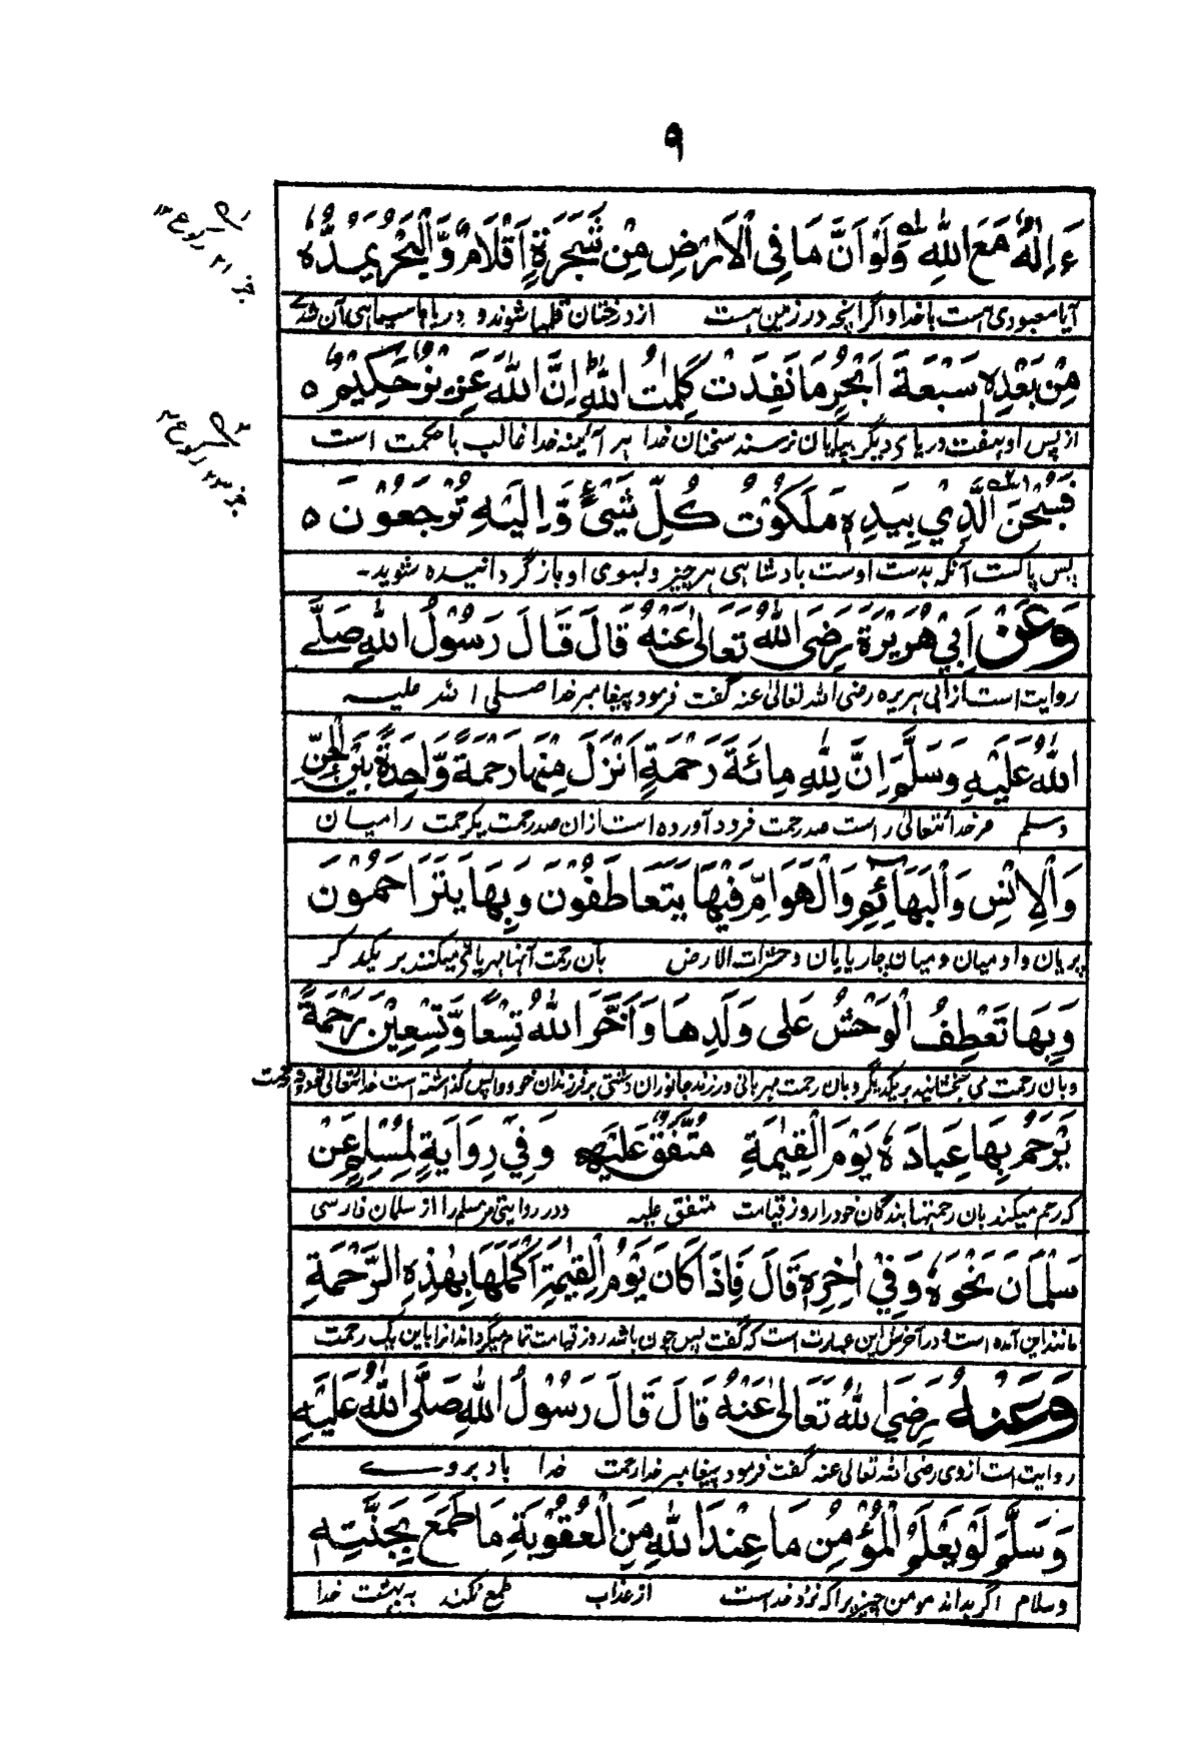 ٩
ءَاِلٰهٌ مَّعَ اللّٰهِ وَلَوْ اَنَّ مَا فِی الْاَرْضِ مِنْ شَجَرَةٍ اَقْلَامٌ وَّالْبَحْرُ یَمُدُّهٗ
آیا معبودی هست با خدا و اگر آنچه در زمین هست از درختان قلمها شوند و دریاها سیاهی آن
مِنْۢ بَعْدِهٖ سَبْعَةُ اَبْحُرٍ مَّا نَفِدَتْ كَلِمٰتُ اللّٰهِ اِنَّ اللّٰهَ عَزِیْزٌ حَكِیْمٌ ۝
از پس او هفت دریای دیگر بپایان نرسند سخنان خدا هر آئینه خدا غالب با حکمت است
فَسُبْحٰنَ الَّذِیْ بِیَدِهٖ مَلَكُوْتُ كُلِّ شَیْءٍ وَّاِلَیْهِ تُرْجَعُوْنَ ۝
پس پاکست آنکه بدست اوست بادشاهی هر چیز و بسوی او بازگردانیده شوید۔
وَعَنْ اَبِیْ هُرَیْرَةَ رَضِیَ اللّٰهُ تَعَالٰی عَنْهُ قَالَ قَالَ رَسُوْلُ اللّٰهِ صَلَّی
روایت است از ابی هریره رضی الله تعالی عنه گفت فرمود پیغامبر خدا صلی الله علیه
اللّٰهُ عَلَیْهِ وَسَلَّمَ اِنَّ لِلّٰهِ مِائَةَ رَحْمَةٍ اَنْزَلَ مِنْهَا رَحْمَةً وَّاحِدَةً بَیْنَ الْجِنِّ
وسلم مر خدائتعالی راست صد رحمت فرود آورده است ازان صد رحمت یکرحمت را میان
وَالْاِنْسِ وَالْبَهَآئِمِ وَالْهَوَامِّ فَبِهَا یَتَعَاطَفُوْنَ وَبِهَا یَتَرَاحَمُوْنَ
پریان و آدمیان و میان چارپایان و حشرات الارض بآن رحمت آنها مهربانی میکنند بر یکدگر
وَبِهَا تَعْطِفُ الْوَحْشُ عَلٰی وَلَدِهَا وَاَخَّرَ اللّٰهُ تِسْعًا وَّتِسْعِیْنَ رَحْمَةً
و بان رحمت می بخشانید بر یکدیگر و بان رحمت مهربانی ورزند جانوران دشتی بر فرزندان خود و واپس گذاشته است خدائتعالی نود و نه رحمت
یَرْحَمُ بِهَا عِبَادَهٗ یَوْمَ الْقِیٰمَةِ مُتَّفَقٌ عَلَیْهِ وَفِیْ رِوَایَةٍ لِّمُسْلِمٍ عَنْ
که رحم میکند بان رحمتها بندگان خود را روز قیامت متفق علیه و در روایتی مر مسلم را از سلمان فارسی
سَلْمَانَ نَحْوَهٗ وَفِیْ اٰخِرِهٖ قَالَ فَاِذَا كَانَ یَوْمُ الْقِیٰمَةِ اَكْمَلَهَا بِهٰذِهِ الرَّحْمَةِ
مانند این آمده است و در آخرش این عبارت است که گفت پس چون باشد روز قیامت تمام میگرداند آنرا باین یک رحمت
وَعَنْهُ رَضِیَ اللّٰهُ تَعَالٰی عَنْهُ قَالَ قَالَ رَسُوْلُ اللّٰهِ صَلَّی اللّٰهُ عَلَیْهِ
روایت است از وی رضی الله تعالی عنه گفت فرمود پیغامبر خدا رحمت خدا باد بروے
وَسَلَّمَ لَوْ یَعْلَمُ الْمُؤْمِنُ مَا عِنْدَ اللّٰهِ مِنَ الْعُقُوْبَةِ مَا طَمِعَ بِجَنَّتِهٖ
وسلام اگر بداند مومن چیزیرا که نزد خداست از عذاب طمع نکند به بهشت خدا